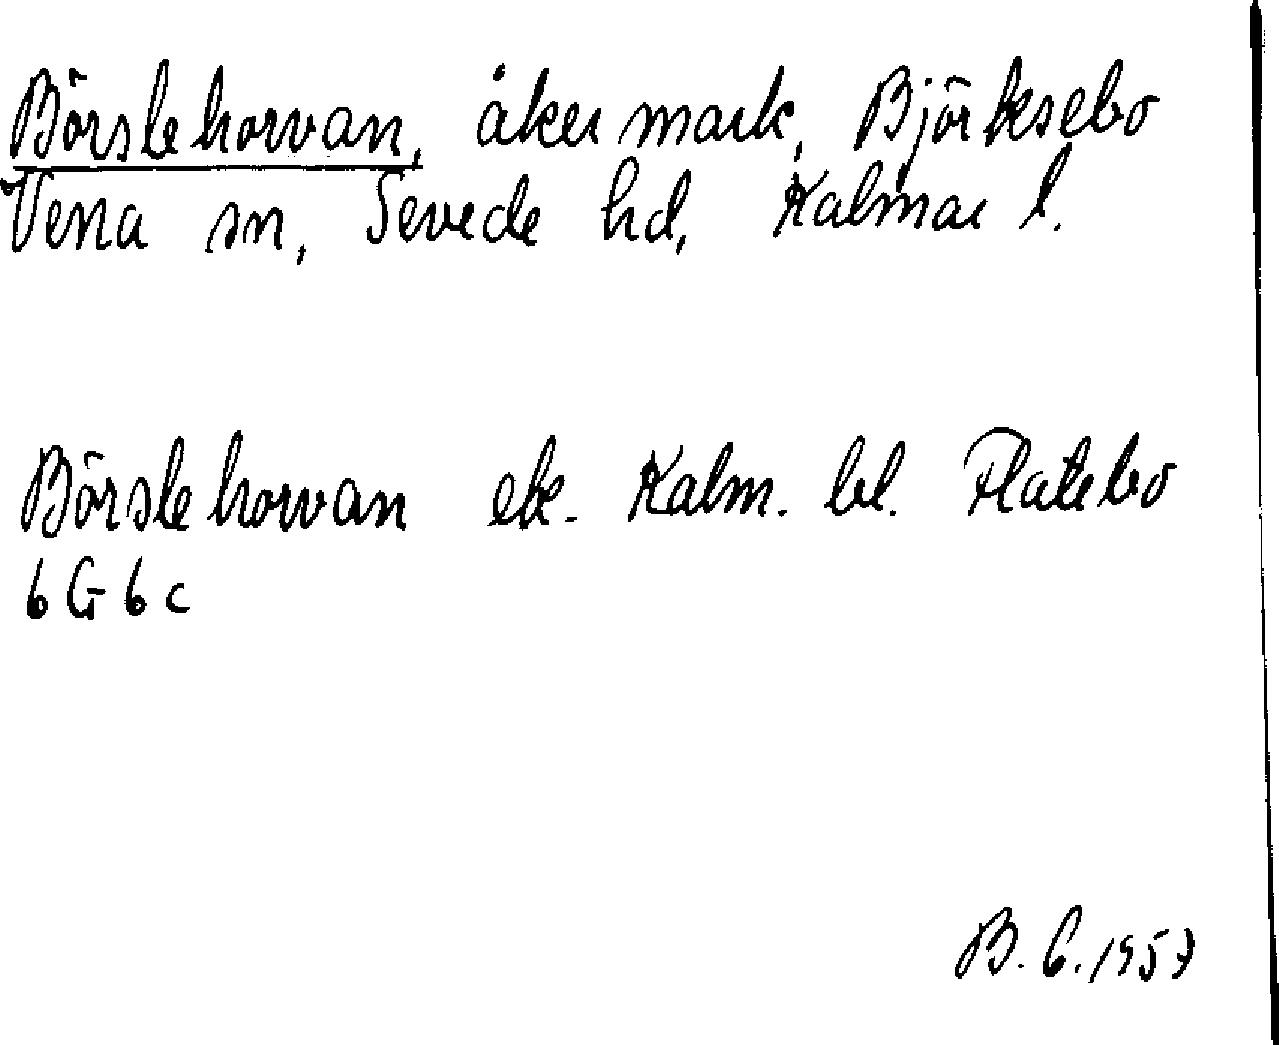 Börslehorvan, åkermark, Björksebo
Vena sn, Sevede hd, Kalmar l.
Börslehorvan ek. Kalm. bl. Flatebo
6G6c
B.C. 1957